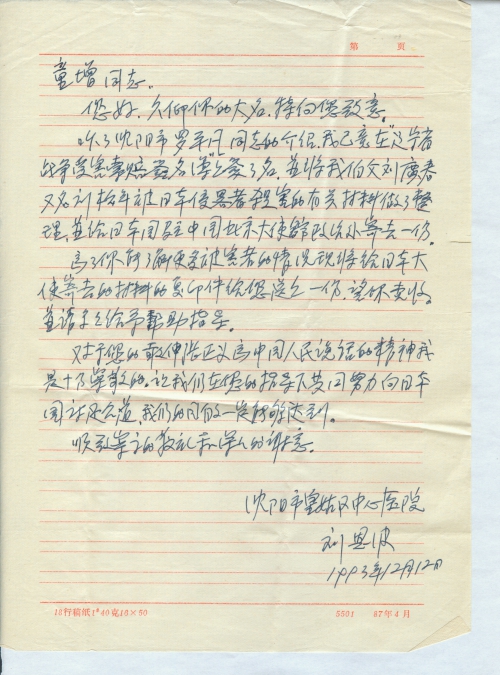 第 页
童增同志.
您好,久仰你的大名,特向您致意.
听了沈阳市罗平凡同志的介绍,我已来在"辽宁省
战争受害索赔签名簿"上签了名,并将我伯父刘广春
又名刘拾年被日本侵略者杀害的有关材料做了整
理,并给日本国驻中国北京大使馆政治处寄去一份.
为了你们了解更多被害者的情况,现将给日本大
使寄去的材料的复印件给您送上一份,望你查收,
并请予之给予帮助指导.
对于您的敢伸张正义为中国人民说话的精神我
是十分崇敬的.让我们在您的指导下共同努力向日本
国讨还公道,我们的目的一定能够达到.
顺致崇高的敬礼和深深的谢意.
沈阳市皇姑区中心医院
刘恩波
1993年12月12日
15行稿纸1#40克16×50
5501 87年4月